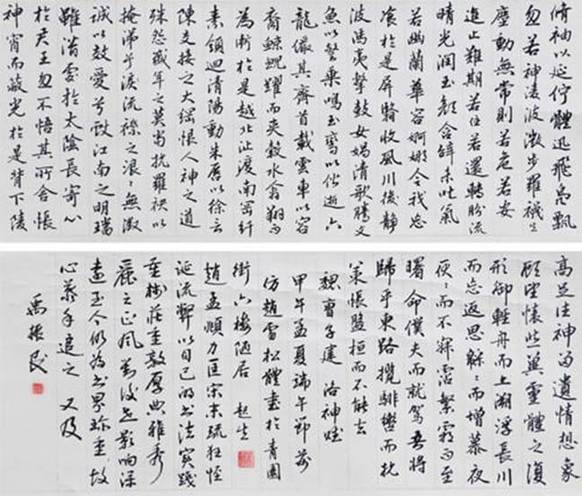 脩袖以延佇體迅飛鳧飄
忽若神凌波微步羅襪生
塵動無常則若危若安
進止難期若往若還轉盼流
晴光潤玉顏含辭未吐氣
若幽蘭華容婀娜令我忘
飡於是屏翳收風川後靜
波馮夷擊鼓女媧清歌騰文
魚以警乘鳴玉鸞以偕逝六
龍儼其齊首載雲車以容
裔鯨鯢耀而夾轂水禽翔而
為衛於是越北沚渡南岡紆
素領迴清陽動朱唇以徐言
陳交接之大綱恨人神之道
殊怨盛年之莫當抗羅袂以
掩涕兮淚流襟之浪々無微
誠以效愛兮獻江南之明璫
雖潛處於太陰長寄心
於君王忽不悟其所舍悵
神宵而蔽光於是背下陵
高足往神留遺情想象
顧望懷愁冀靈體之復
形御輕舟而上溯浮長川
而忘返思綿々而增慕夜
耿々而不寐霑繁霜而至
曙命僕夫而就駕吾將
歸乎東路攬騑轡而抗
策悵盤桓而不能去
魏曹子建洛神賦
甲午孟夏端午節前
仿趙雪松體書於青園
街六樓陋居 起生
趙孟頫力匡宋末疏狂怪
誕流弊以自己的書法實踐
重樹莊重敦厚典雅秀
麗之正風後世影響深
遠至今仍為書界珍重故
心慕手追之 又及
禹振民